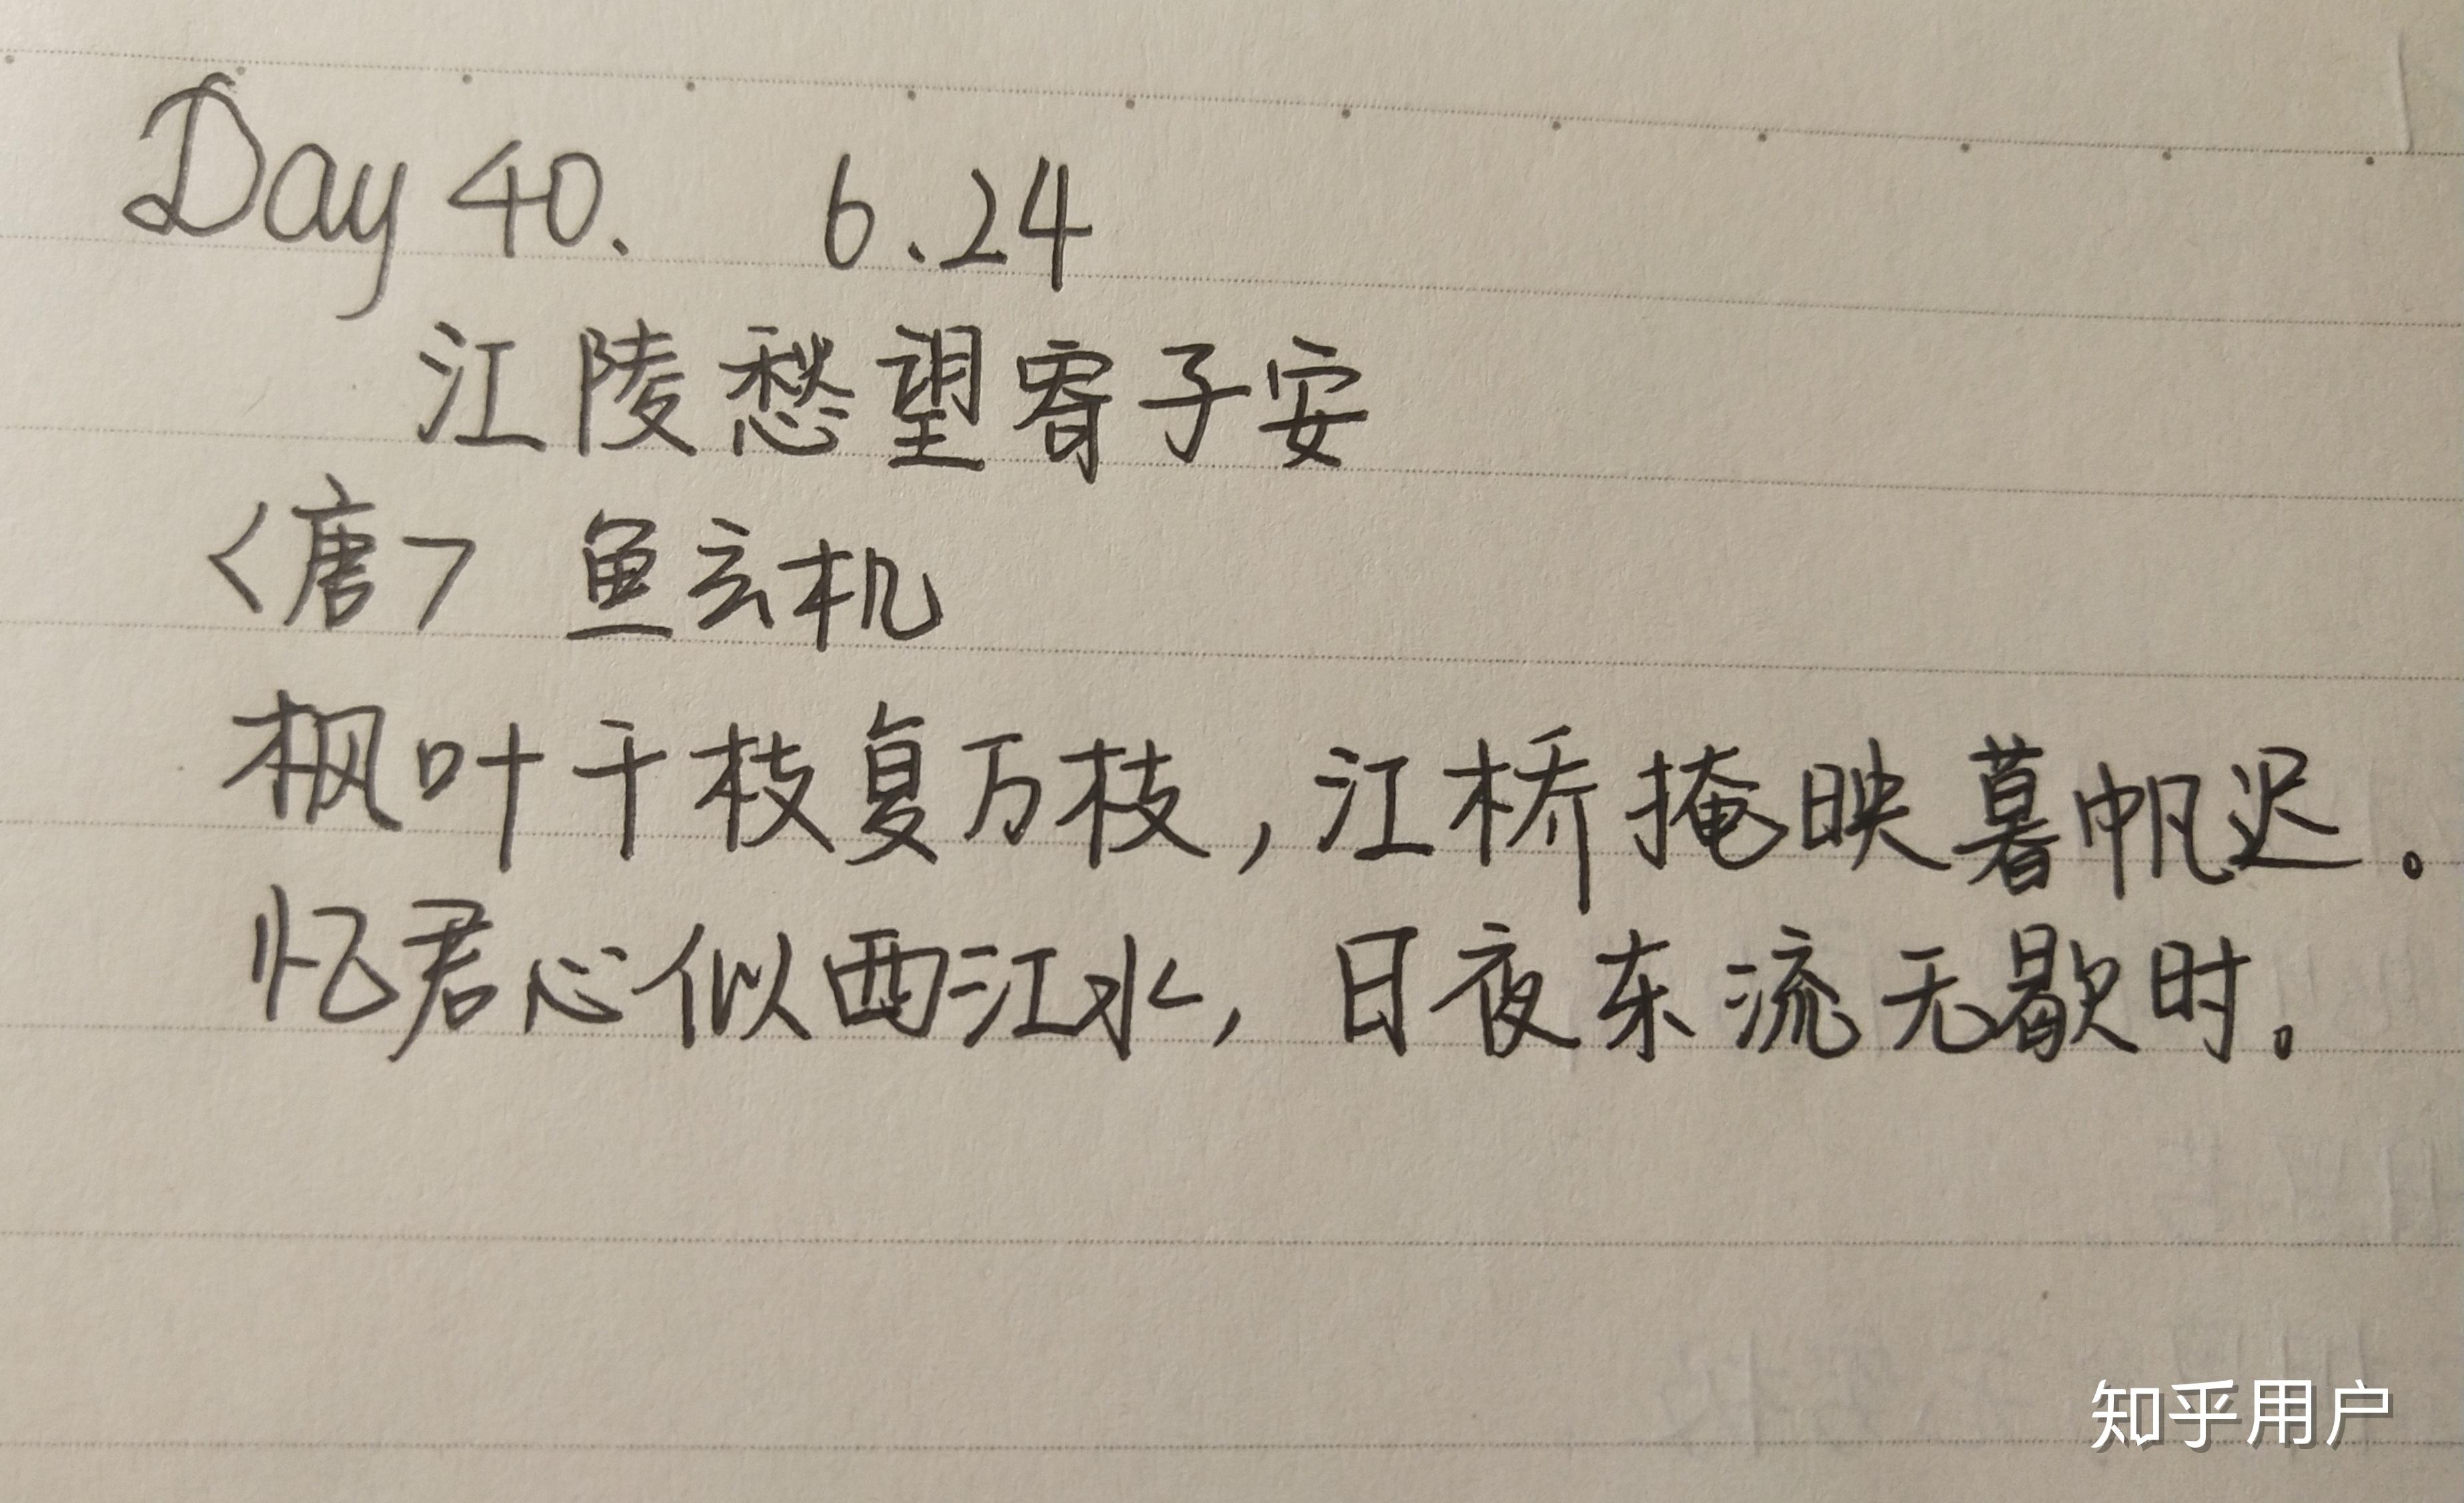 Day 40. 6.24
江陵愁望寄子安
<唐> 鱼玄机
枫叶千枝复万枝,江桥掩映暮帆迟。
忆君心似西江水,日夜东流无歇时。
知乎用户